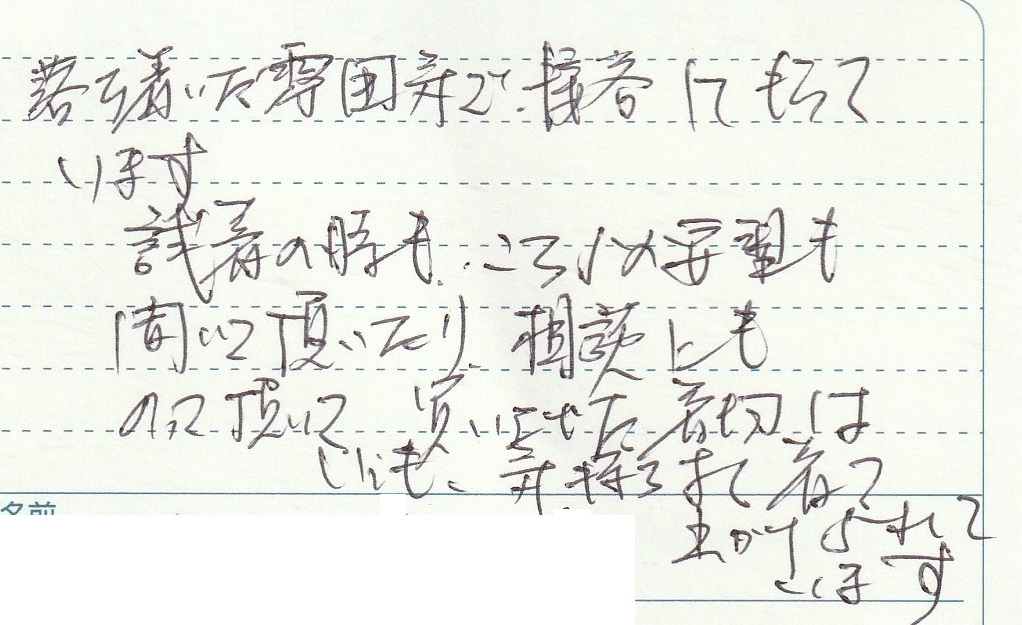 落ち着いた雰囲気で、接客してもらって
います
試着の時も、こちらの要望も
聞いて頂いたり、相談にも
のって頂いて 買いした着物は
いつも、気持ちよく着て
出かけられて
います
名前